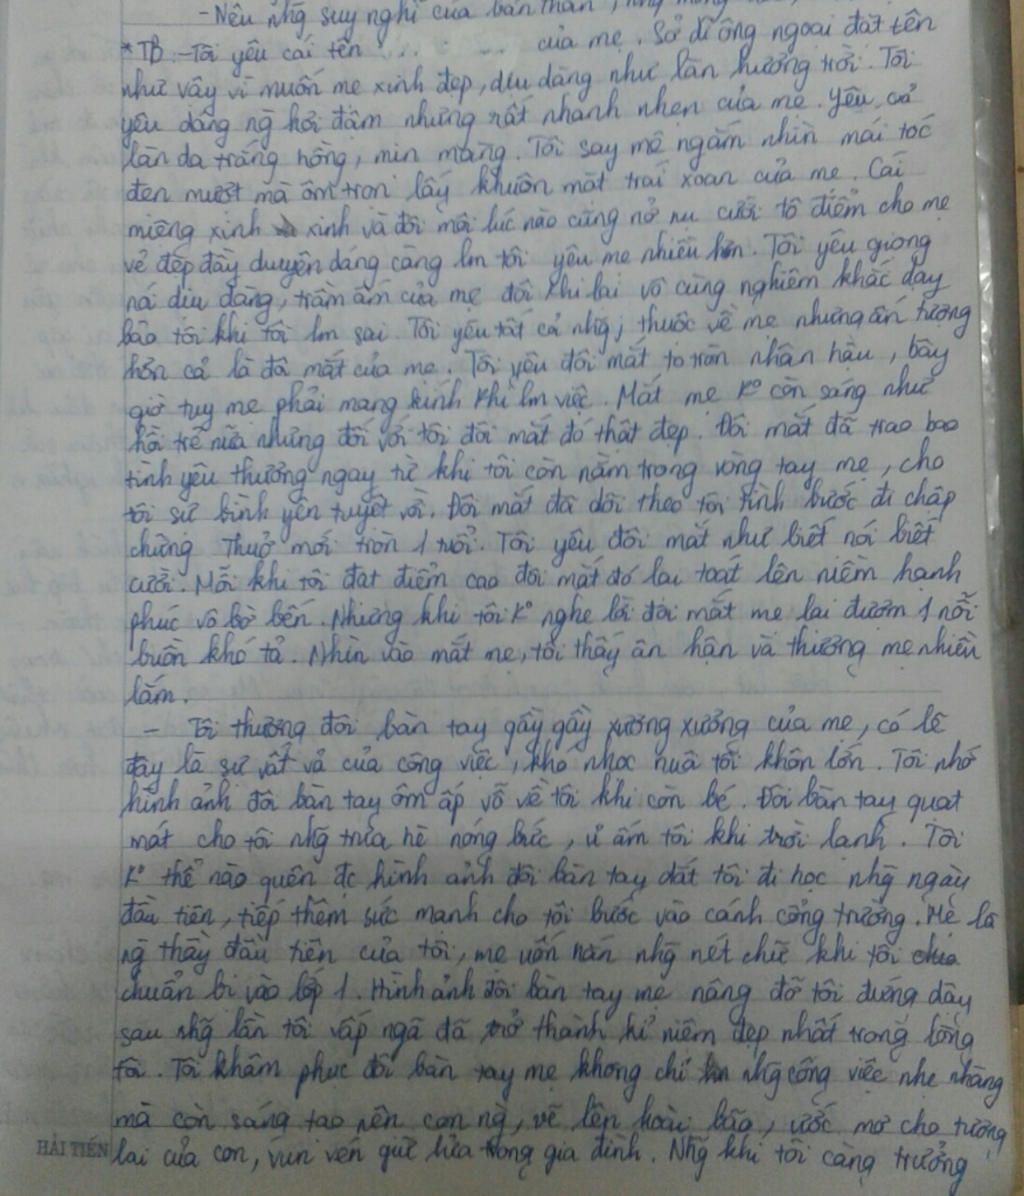 - Nêu nhg suy nghĩ của bản thân,
* TB: - Tôi yêu cái tên ... ... của mẹ. Sở dĩ ông ngoại đặt tên
như vậy vì muốn mẹ xinh đẹp, dịu dàng như làn hương trời. Tôi
yêu dáng ng hơi đậm nhưng rất nhanh nhẹn của mẹ. Yêu cả
làn da trắng hồng, mịn màng. Tôi say mê ngắm nhìn mái tóc
đen mượt mà ôm tròn lấy khuôn mặt trái xoan của mẹ. Cái
miệng xinh xinh và đôi môi lúc nào cũng nở nụ cười tô điểm cho mẹ
vẻ đẹp đầy duyên dáng càng lm tôi yêu mẹ nhiều hơn. Tôi yêu giọng
nói dịu dàng, trầm ấm của mẹ đôi khi lại vô cùng nghiêm khắc dạy
bảo tôi khi tôi lm sai. Tôi yêu tất cả nhg j thuộc về mẹ nhưng ấn tượng
hơn cả là đôi mắt của mẹ. Tôi yêu đôi mắt to tròn nhân hậu, bây
giờ tuy mẹ phải mang kính khi lm việc. Mắt mẹ k° còn sáng như
hồi trẻ nữa nhưng đối với tôi đôi mắt đó thật đẹp. Đôi mắt đã trao bao
tình yêu thương ngay từ khi tôi còn nằm trong vòng tay mẹ, cho
tôi sự bình yên tuyệt vời. Đôi mắt đã dõi theo tôi từng bước đi chập
chững thuở mới tròn 1 tuổi. Tôi yêu đôi mắt như biết nói biết
cười. Mỗi khi tôi đạt điểm cao đôi mắt đó lại toát lên niềm hạnh
phúc vô bờ bến. Nhưng khi tôi k° nghe lời đôi mắt mẹ lại đượm 1 nỗi
buồn khó tả. Nhìn vào mắt mẹ, tôi thấy ân hận và thương mẹ nhiều
lắm.
- Tôi thương đôi bàn tay gầy gầy xương xương của mẹ, có lẽ
đây là sự vất vả của công việc, khó nhọc nuôi tôi khôn lớn. Tôi nhớ
hình ảnh đôi bàn tay ôm ấp vỗ về tôi khi còn bé. Đôi bàn tay quạt
mát cho tôi nhg trưa hè nóng bức, ủ ấm tôi khi trời lạnh. Tôi
k° thể nào quên đc hình ảnh đôi bàn tay dắt tôi đi học nhg ngày
đầu tiên, tiếp thêm sức mạnh cho tôi bước vào cánh cổng trường. Mẹ là
ng thầy đầu tiên của tôi, mẹ uốn nắn nhg nét chữ khi tôi
chuẩn bị vào lớp 1. Hình ảnh đôi bàn tay mẹ nâng đỡ tôi đứng dậy
sau nhg lần tôi vấp ngã đã trở thành kỉ niệm đẹp nhất trong lòng
tôi. Tôi khâm phục đôi bàn tay mẹ không chỉ lm nhg công việc nhẹ nhàng
mà còn sáng tạo nên con ng, vẽ lên hoài bão, ước mơ cho tương
HẢI TIẾN lai của con, vun vén giữ lửa trong gia đình. Nhg khi tôi càng trưởng